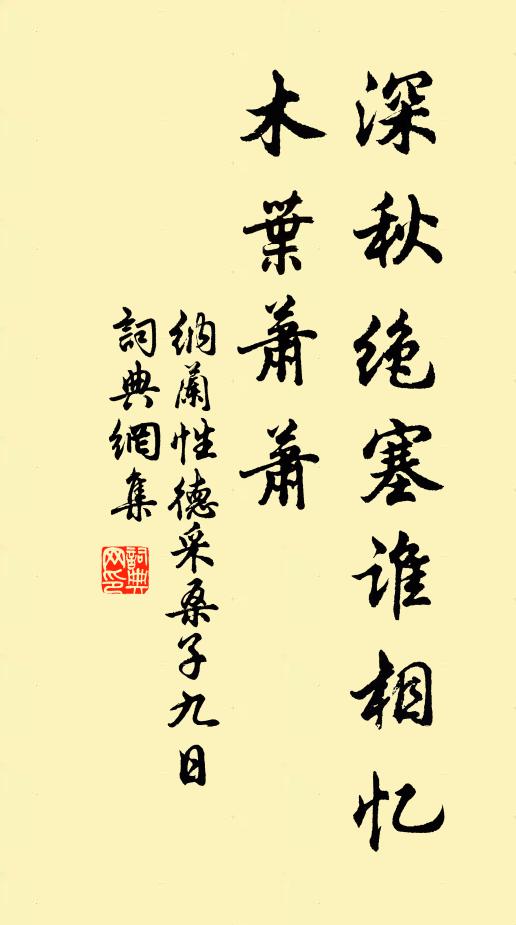 深秋绝塞谁相忆
木葉蕭蕭
纳蘭性德采桑子九日
詞典網集
詞典网印